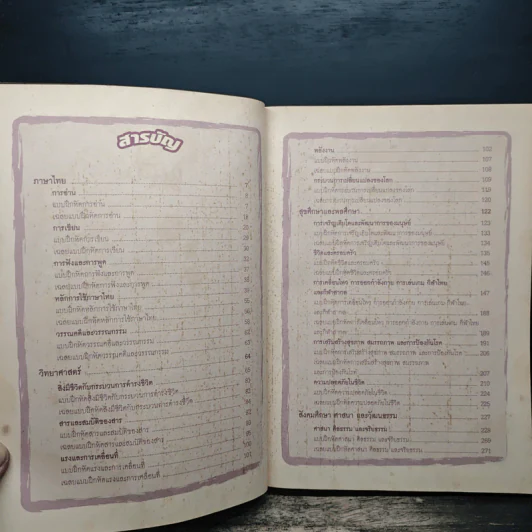 สารบัญ
ภาษาไทย
การอ่าน
แบบฝึกหัดการอ่าน
เฉลยแบบฝึกหัดการอ่าน
การเขียน
แบบฝึกหัดการเขียน
เฉลยแบบฝึกหัดการเขียน
การฟังและการพูด
แบบฝึกหัดการฟังและการพูด
เฉลยแบบฝึกหัดการฟังและการพูด
หลักการใช้ภาษาไทย
แบบฝึกหัดหลักการใช้ภาษาไทย
เฉลยแบบฝึกหัดหลักการใช้ภาษาไทย
วรรณคดีและวรรณกรรม
แบบฝึกหัดวรรณคดีและวรรณกรรม
เฉลยแบบฝึกหัดวรรณคดีและวรรณกรรม
วิทยาศาสตร์ 64
สิ่งมีชีวิตกับกระบวนการดำรงชีวิต
แบบฝึกหัดสิ่งมีชีวิตกับกระบวนการดำรงชีวิต
เฉลยแบบฝึกหัดสิ่งมีชีวิตกับกระบวนการดำรงชีวิต
สารและสมบัติของสาร
แบบฝึกหัดสารและสมบัติของสาร
เฉลยแบบฝึกหัดสารและสมบัติของสาร
แรงและการเคลื่อนที่
แบบฝึกหัดแรงและการเคลื่อนที่
เฉลยแบบฝึกหัดแรงและการเคลื่อนที่ 101
พลังงาน 102
แบบฝึกหัดพลังงาน
เฉลยแบบฝึกหัดพลังงาน
กระบวนการเปลี่ยนแปลงของโลก
แบบฝึกหัดกระบวนการเปลี่ยนแปลงของโลก
เฉลยแบบฝึกหัดกระบวนการเปลี่ยนแปลงของโลก
สุขศึกษาและพลศึกษา 122
การเจริญเติบโตและพัฒนาการของมนุษย์
แบบฝึกหัดการเจริญเติบโตและพัฒนาการของมนุษย์
เฉลยแบบฝึกหัดการเจริญเติบโตและพัฒนาการของมนุษย์ 134
ชีวิตและครอบครัว 135
แบบฝึกหัดชีวิตและครอบครัว 145
เฉลยแบบฝึกหัดชีวิตและครอบครัว 146
การเคลื่อนไหว การออกกำลังกาย การเล่นเกม กีฬาไทย
และกีฬาสากล 147
แบบฝึกหัดการเคลื่อนไหว การออกกำลังกาย การเล่นเกม กีฬาไทย
และกีฬาสากล
เฉลยแบบฝึกหัดการเคลื่อนไหว การออกกำลังกาย การเล่นเกม กีฬาไทย
และกีฬาสากล
การสร้างเสริมสุขภาพ สมรรถภาพ และการป้องกันโรค
แบบฝึกหัดการสร้างเสริมสุขภาพ สมรรถภาพ และการป้องกันโรค
เฉลยแบบฝึกหัดการสร้างเสริมสุขภาพ สมรรถภาพ
และการป้องกันโรค
ความปลอดภัยในชีวิต
แบบฝึกหัดความปลอดภัยในชีวิต
เฉลยแบบฝึกหัดความปลอดภัยในชีวิต
สังคมศึกษา ศาสนา และวัฒนธรรม
ศาสนา ศีลธรรม และจริยธรรม 228
แบบฝึกหัดศาสนา ศีลธรรม และจริยธรรม 269
เฉลยแบบฝึกหัดศาสนา ศีลธรรม และจริยธรรม 271